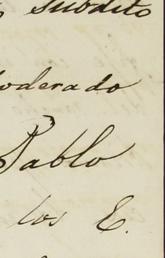 subdito
oderado
Pablo
los E.